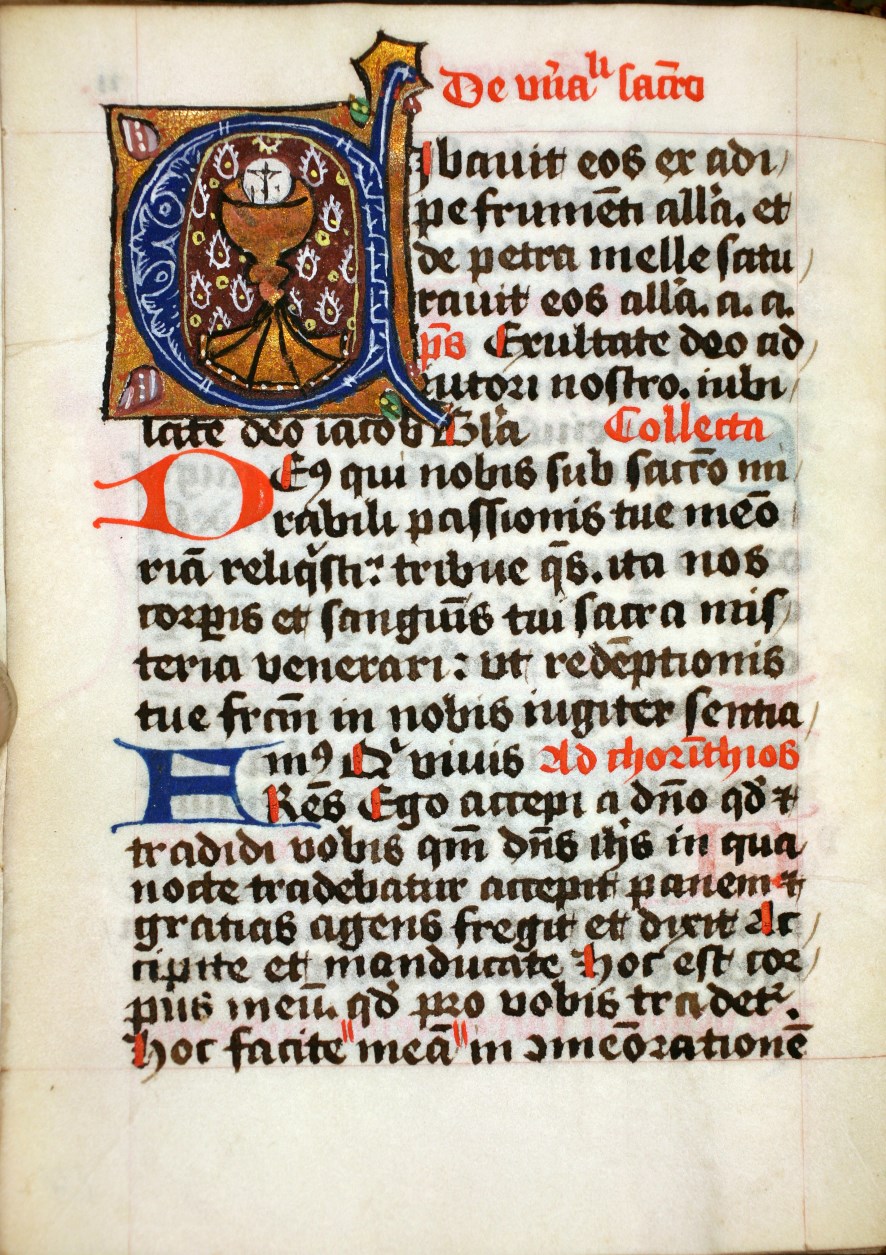 De vn̄aˡⁱ sacr̄o
Cibauit eos ex adi
pe frumēti all'a. et
de petra melle satu
rauit eos all'a. a. a.
p̄s Exultate deo ad
iutori nostro. iubi
late deo iacob Gl'a Collecta
DEꝰ qui nobis sub sacr̄o mi
rabili passionis tue meō
riā reliqͥsti: tribue q̄s. ita nos
corꝑis et sanguīs tui sacra mis
teria venerari: vt redēptionis
tue frc̄m in nobis iugiter sentia
mꝰ Qͥ viuis Ad chorīthios
FRēs Ego accepi a dn̄o qd̓ ⁊
tradidi vobis qm̄ dn̄s ih̄s in qua
nocte tradebatur accepit panem ⁊
gratias agens fregit et dixit Ac
cipite et manducate Hoc est cor
pus meū. qd̓ pro vobis tradetᷣ.
Hoc facite "meā" in ꝯmeōrationē